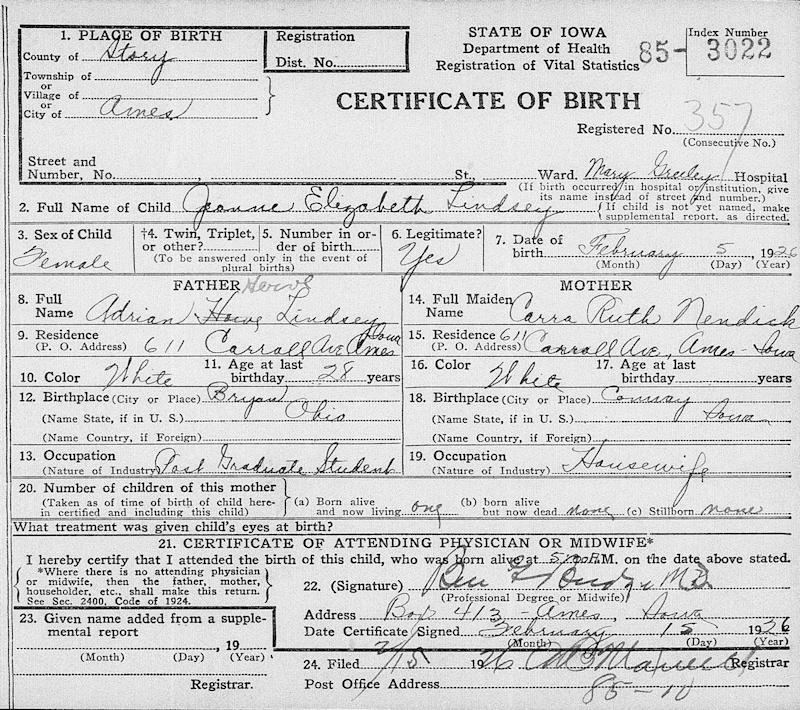 STATE OF IOWA
Department of Health
Registration of Vital Statistics
85-
Index Number
3022
1. PLACE OF BIRTH
County of Story
Township of
or
Village of
or
City of Ames
Registration
Dist. No.
CERTIFICATE OF BIRTH
Registered No. 357
(Consecutive No.)
Street and
Number, No. , St., Ward. Mary Greeley Hospital
(If birth occurred in hospital or institution, give
its name instead of street and number.)
2. Full Name of Child Jeanne Elizabeth Lindsey
(If child is not yet named, make
supplemental report, as directed.
3. Sex of Child
Female
†4. Twin, Triplet,
or other?
5. Number in or-
der of birth
(To be answered only in the event of
plural births)
6. Legitimate?
Yes
7. Date of
birth February 5, 1926
(Month) (Day) (Year)
FATHER
8. Full
Name Adrian Howe Lindsey
9. Residence
(P. O. Address) 611 Carroll Ave Ames Iowa
10. Color White
11. Age at last
birthday 28 years
12. Birthplace (City or Place) Bryan
(Name State, if in U. S.) Ohio
(Name Country, if Foreign)
13. Occupation
(Nature of Industry) Post Graduate Student
MOTHER
14. Full Maiden
Name Carra Ruth Nendick
15. Residence 611
(P. O. Address) Carroll Ave, Ames - Iowa
16. Color White
17. Age at last
birthday years
18. Birthplace (City or Place) Conway
(Name State, if in U. S.) Iowa
(Name Country, if Foreign)
19. Occupation
(Nature of Industry) Housewife
20. Number of children of this mother
(Taken as of time of birth of child here-
in certified and including this child)
(a) Born alive
and now living one
(b) born alive
but now dead none (c) Stillborn none
What treatment was given child's eyes at birth?
21. CERTIFICATE OF ATTENDING PHYSICIAN OR MIDWIFE*
I hereby certify that I attended the birth of this child, who was born alive at 5:00 P.M. on the date above stated.
*Where there is no attending physician
or midwife, then the father, mother,
householder, etc., shall make this return.
See Sec. 2400, Code of 1924.
22. (Signature) Ben M.D.
(Professional Degree or Midwife)
Address Box 413 - Ames, Iowa
Date Certificate Signed February 15 1926
(Month) (Day) (Year)
23. Given name added from a supple-
mental report
, 19
(Month) (Day) (Year)
Registrar.
24. Filed 2/15 1926 Registrar
Post Office Address 85-10